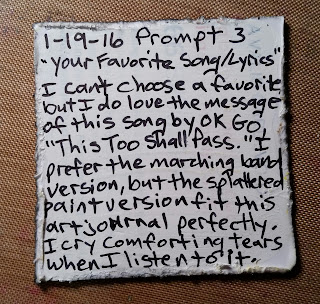 1-19-16 Prompt 3
"Your Favorite Song/Lyrics"
I can't choose a favorite
but I do love the message
of this song by OK GO,
"This Too Shall Pass." I
prefer the marching band
version, but the splattered
paint version fit this
art journal perfectly.
I cry comforting tears
when I listen to it.